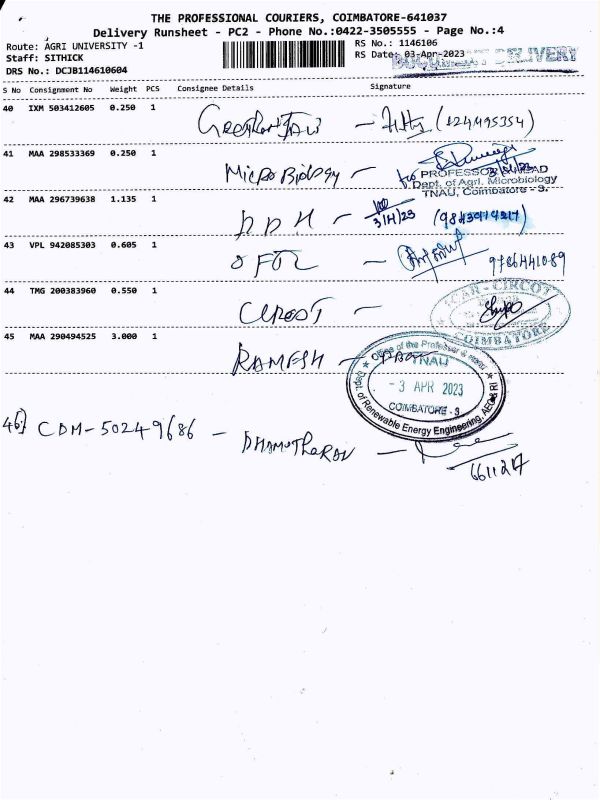 THE PROFESSIONAL COURIERS, COIMBATORE-641037
Delivery Runsheet - PC2 - Phone No.:0422-3505555 - Page No.:4
Route: AGRI UNIVERSITY -1
Staff: SITHICK
DRS No.: DCJB114610604
RS No.: 1146106
RS Date: 03-Apr-2023
DOCUMENT DELIVERY
S No Consignment No Weight PCS Consignee Details Signature
40 IXM 503412605 0.250 1
41 MAA 298533369 0.250 1 MicroBiology -
PROFESSOR HEAD
Dept. of Agrl. Microbiology
TNAU, Coimbatore - 3.
42 MAA 296739638 1.135 1
3/4/23
43 VPL 942085303 0.605 1
9786441089
44 TMG 200383960 0.550 1 CIRCOT -
ICAR - CIRCOT
COIMBATORE
45 MAA 290494525 3.000 1 RAMESH -
Office of the Professor & Head
TNAU
- 3 APR 2023
COIMBATORE - 3
Dept. of Renewable Energy Engineering, AEC&RI
46] CDM-50249686 - DHAMOTHARAN -